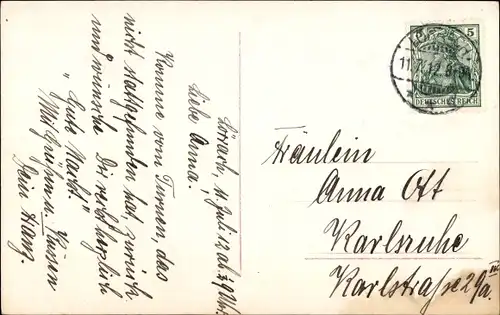 Lörrach, 11. Juli 12, ab. ½ 9 Uhr.
Liebe Anna,
Komme vom Turnen, das
nicht stattgefunden hat, zurück
und wünsche Dir recht herzlich
„Gute Nacht."
Mit Grüßen u. Küssen
Dein Hans.
5
DEUTSCHES REICH
Fräulein
Anna Ott
Karlsruhe
Karlstraße 29a III